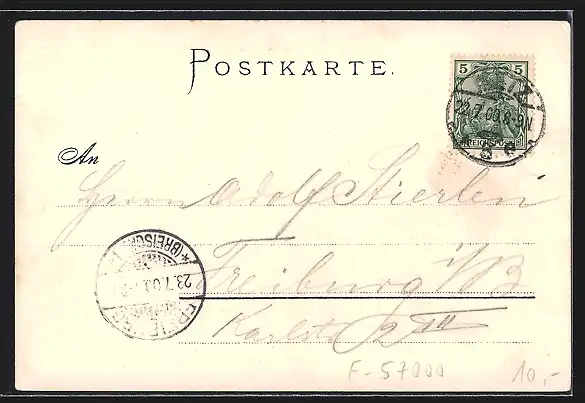 POSTKARTE.
5
5
22.7.00.8-9N
REICHSPOST
An
Herrn Adolf Stierlen
(BREISGAU)
Freiburg i/B
23.7.00
FREIBURG
Karlstr 2 III
F-57000
10,-